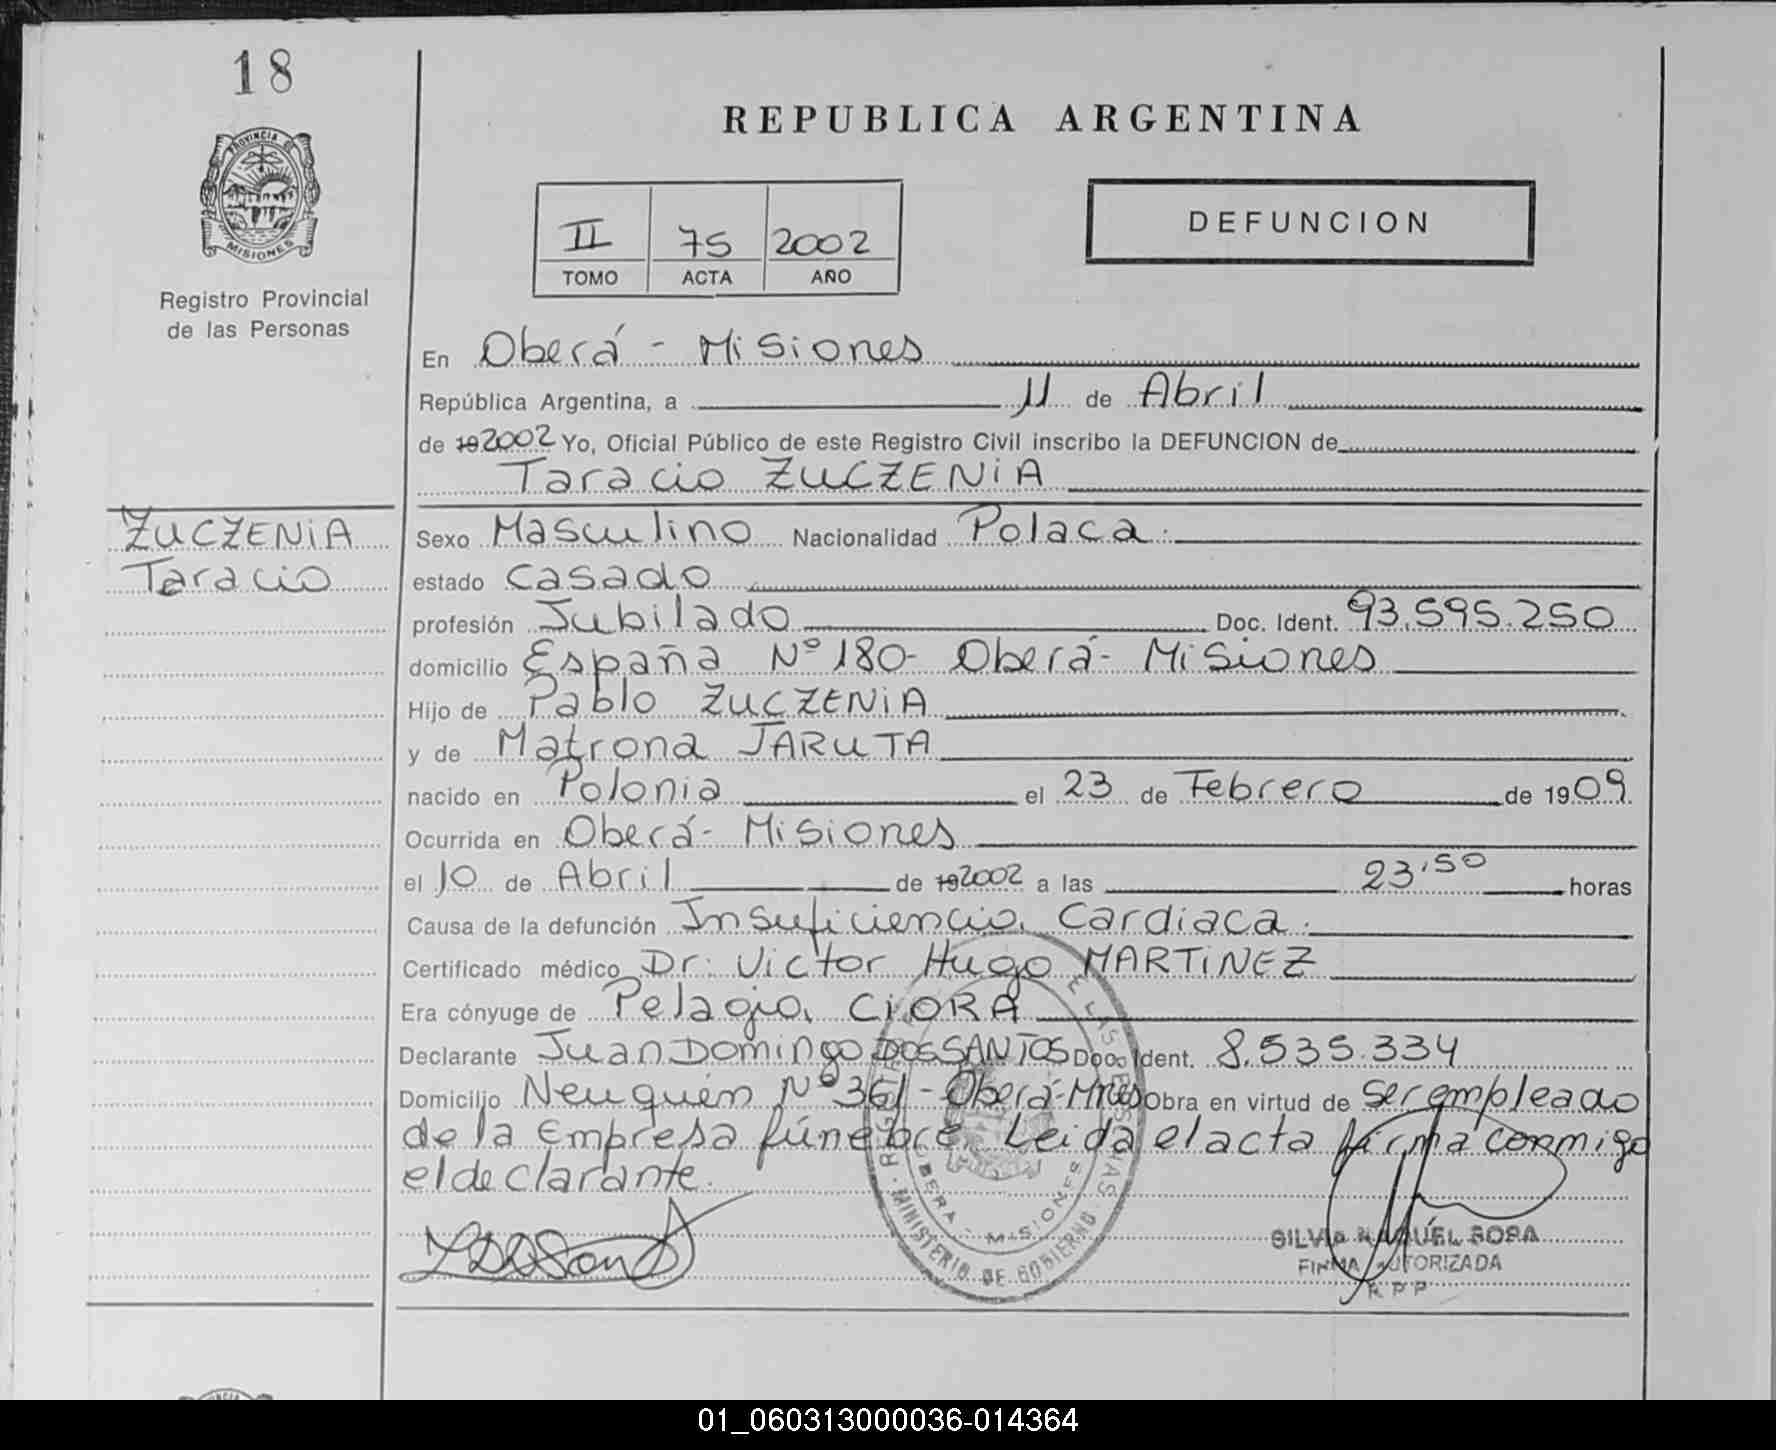 18
REPUBLICA ARGENTINA
PROVINCIA DE
MISIONES
Registro Provincial
de las Personas
II 75 2002
TOMO ACTA AÑO
DEFUNCION
En Oberá - Misiones
República Argentina, a 11 de Abril
de 19 2002 Yo, Oficial Público de este Registro Civil inscribo la DEFUNCION de
Taracio ZUCZENIA
ZUCZENIA
Taracio
Sexo Masculino Nacionalidad Polaca.
estado Casado
profesión Jubilado Doc. Ident. 93.595.250
domicilio España Nº 180- Oberá- Misiones
Hijo de Pablo ZUCZENIA
y de Matrona JARUTA
nacido en Polonia el 23 de Febrero de 1909.
Ocurrida en Oberá- Misiones
el 10 de Abril de 19 2002 a las 23,50 horas
Causa de la defunción Insuficiencia Cardiaca.
Certificado médico Dr. Victor Hugo MARTINEZ
Era cónyuge de Pelagia CIORA
Declarante Juan Domingo DOS SANTOS Doc. Ident. 8.535.334
Domicilio Neuquén Nº 361 - Oberá-Mnes Obra en virtud de ser empleado
de la Empresa fúnebre. Leida el acta firma conmigo
el declarante.
OBERA - MISIONES
MINISTERIO DE GOBIERNO
SILVIA RAQUEL SOSA
FIRMA AUTORIZADA
R P P
01_060313000036-014364